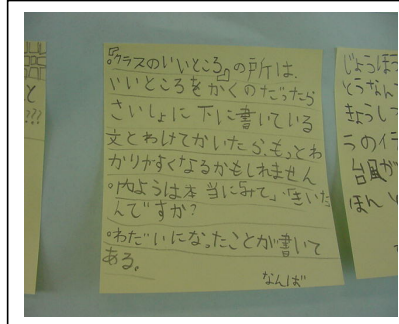 と
???
『クラスのいいところ』の所は、
いいところをかくのだったら
さいしょに下に書いている
文とわけてかいたら、もっとわ
かりやすくなるかもしれません
・内ようは本当に「みて」、「きいた
んですか?
・わだいになったことが書いて
ある。
なんば
じょうほう
とうなん
きょうし
うのイ
台風が
ほん